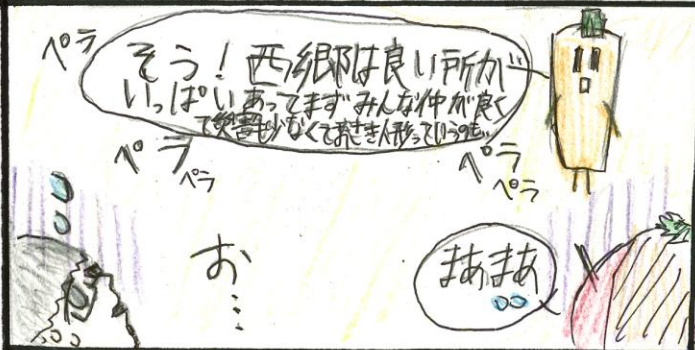 そう！西郷は良い所が
いっぱいあってまずみんな仲が良く
て災害も少なくておさき人形っていうのも…
ペラ
ペラ
ペラ
ペラ
ペラ
お…
まあまあ